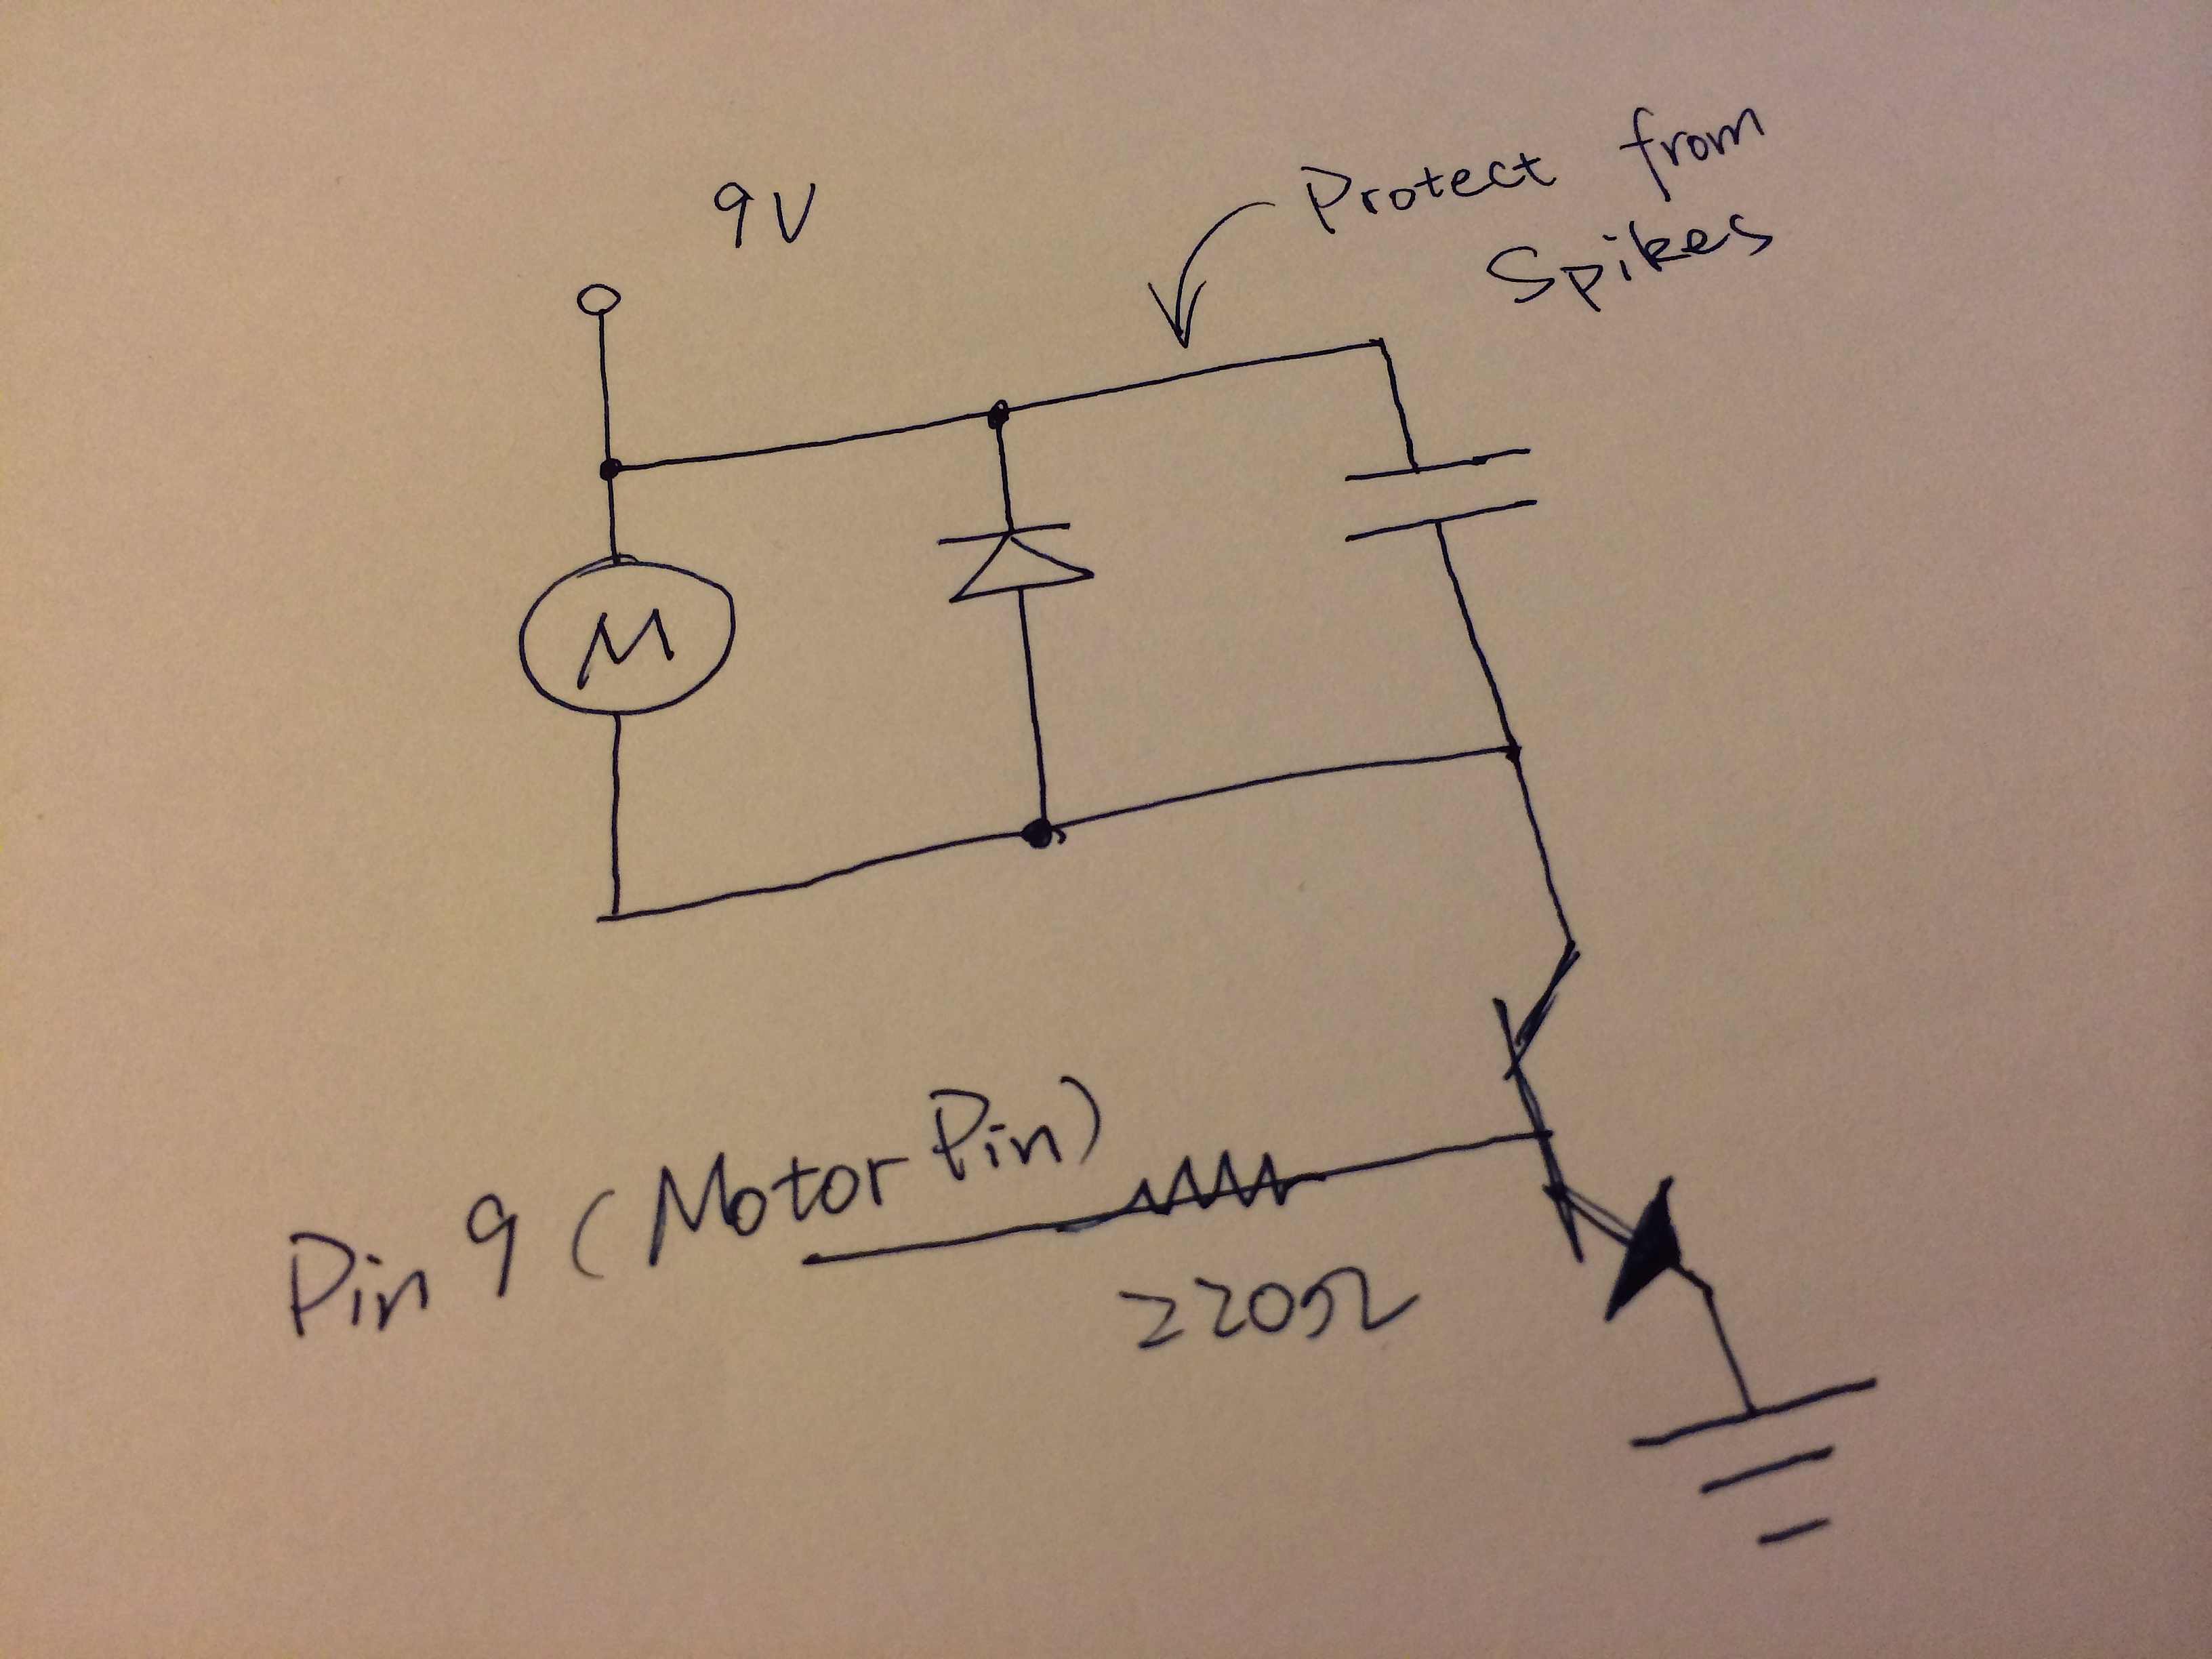 9V
Protect from
Spikes
M
Pin 9 (Motor Pin)
220Ω